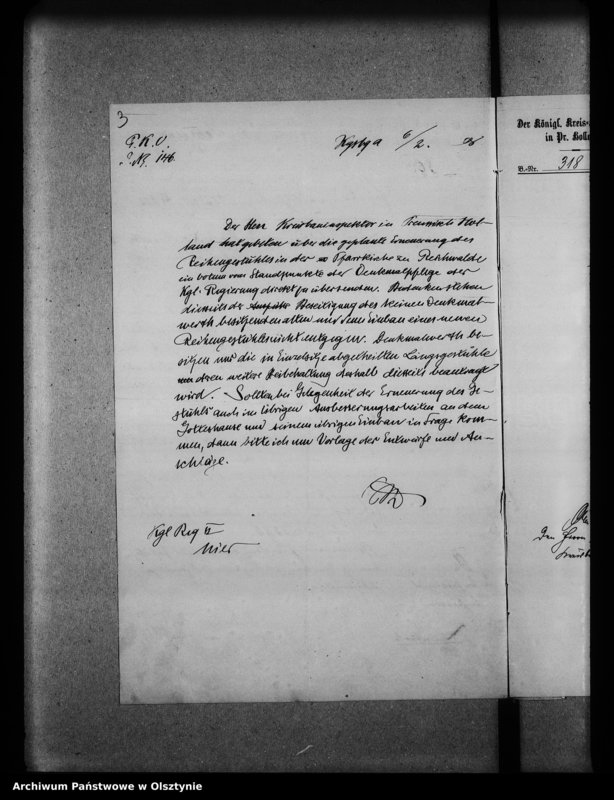 3
P. K. O.
J. N. 146.
Kgsbg a 6/2. 08
Der Herr Kreisbauinspektor in Preussisch Hol-
land hat gebeten über die geplante Erneuerung des
Reihengestühles in der Pfarrkirche zu Reichwalde
ein votum vom Standpunkte der Denkmalpflege der
Kgl. Regierung direkt zu übersenden. Bedenken stehen
diesseits der Beseitigung des keinen Denkmal-
werth besitzenden alten und dem Einbau eines neuen
Reihengestühls nicht entgegen. Denkmalwerth be-
sitzen nur die in Einzelsitze abgetheilten Längsgestühle
deren weitere Beibehaltung deshalb diesseits beantragt
wird. Sollten bei Gelegenheit der Erneuerung des Ge-
stühls auch im übrigen Ausbesserungsarbeiten an dem
Gotteshause und seinem übrigen Einbau in Frage kom-
men, dann bitte ich um Vorlage der Entwürfe und An-
schläge.
Kgl Reg II
hier
Der Königl. Kreis-
in Pr. Holl
B.-Nr. 318
Den Herrn
Archiwum Państwowe w Olsztynie